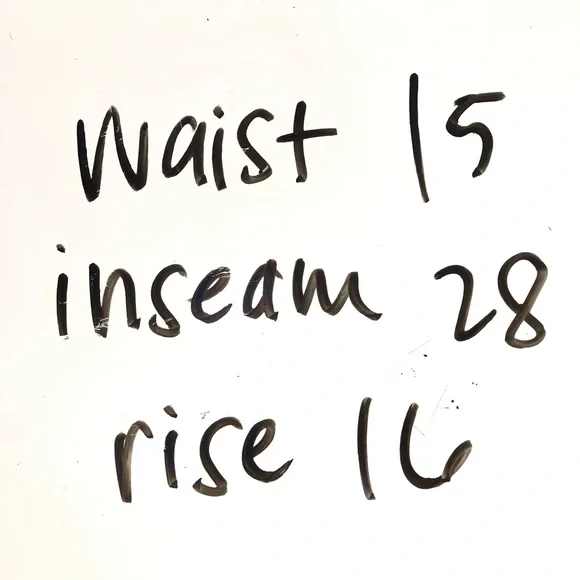 Waist 15
inseam 28
rise 16